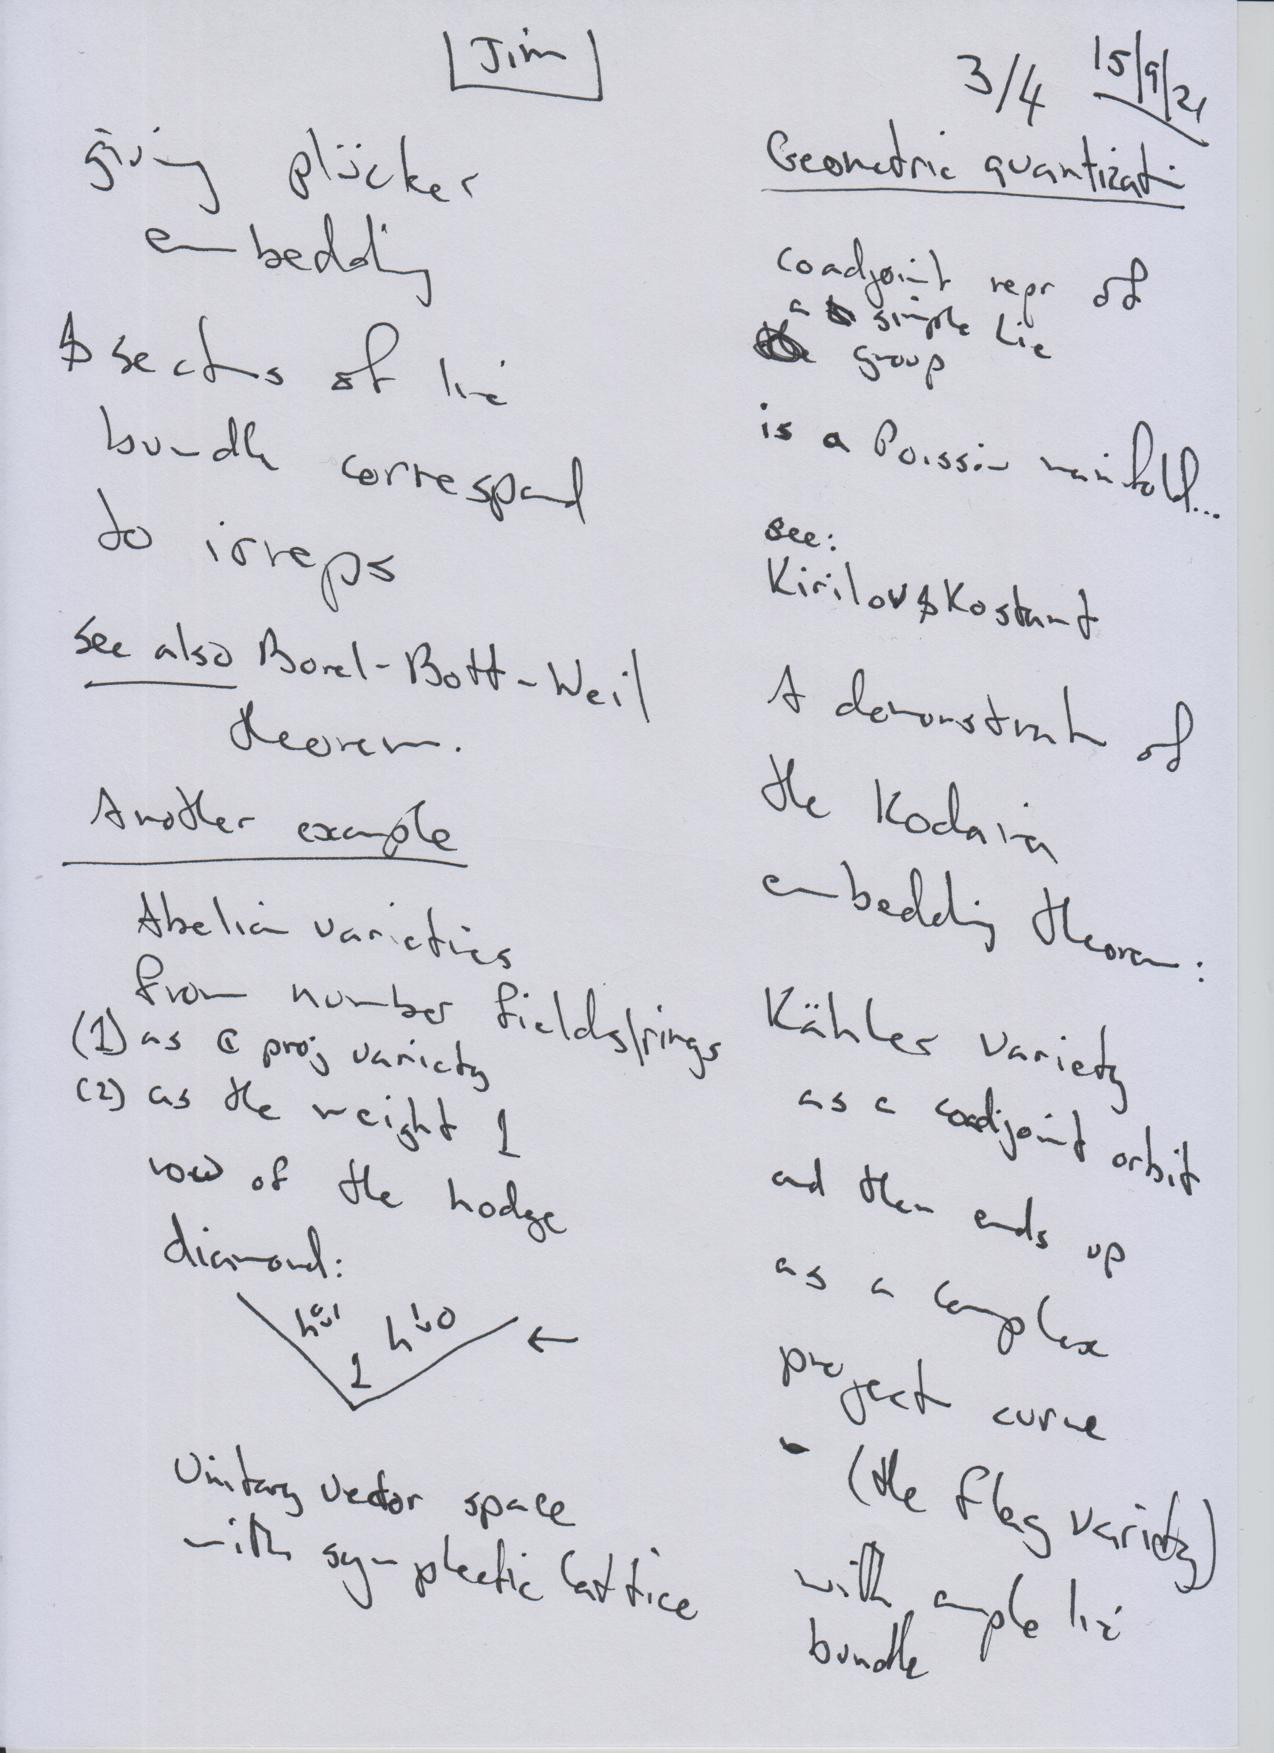 Jim
3/4 15/9/21
giving plücker
embedding
& sectns of line
bundle correspond
to irreps
see also Borel-Bott-Weil
theorem.
Another example
Abelian varieties
from number fields/rings
(1) as ℂ proj variety
(2) as the weight 1
row of the hodge
diamond:
h⁰,¹ h¹,⁰ ←
1
Unitary vector space
with symplectic lattice
Geometric quantizatn
coadjoint repr of
a simple Lie
group
is a Poisson manifold...
see:
Kirilov & Kostant
A demonstratn of
the Kodaira
embedding theorem:
Kähler variety
as a coadjoint orbit
and then ends up
as a complex
project curve
- (the flag variety)
with ample line
bundle